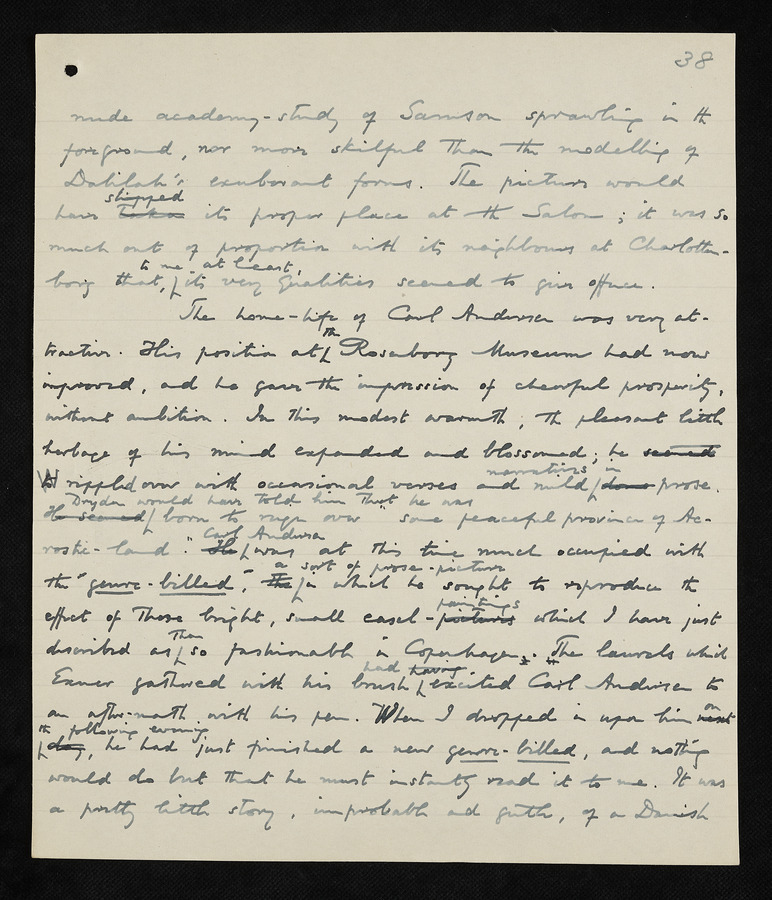 38
nude academy-study of Samson sprawling in th
foreground, nor more skilful than the modelling of
Dalilah's exuberant forms. The picture would
slipped
have taken its proper place at th Salon; it was so
much out of proportion with its neighbours at Charlotten-
to me at least,
borg that, its very qualities seemed to give offence.
The home-life of Carl Andersen was very at-
th
tractive. His position at Rosenborg Museum had now
improved, and he gave the impression of cheerful prosperity,
without ambition. In this modest warmth, th pleasant little
herbage of his mind expanded and blossomed; he seemed
narratives in
rippled over with occasional verses and mild prose.
Dryden would have told him that he was
He seemed born to "reign over some peaceful province of Ac-
Carl Andersen
rostic-land." He was at this time much occupied with
a sort of prose-picture
the "genre-billed," in which he sought to reproduce th
paintings
effect of those bright, small easel-pictures which I have just
then
described as so fashionable in Copenhagen. The laurels which
had having
Exner gathered with his brush excited Carl Andersen to
on
an after-math with his pen. When I dropped in upon him next
th following evening,
day, he had just finished a new genre-billed, and nothing
would do but that he must instantly read it to me. It was
a pretty little story, improbable and gentle, of a Danish